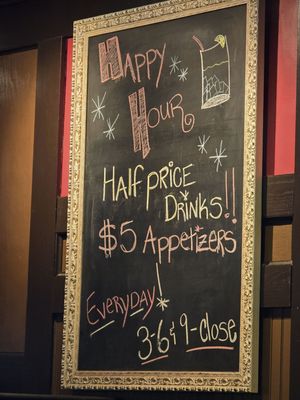 Happy
Hour
Half price
Drinks!!
$5 Appetizers
Everyday!
3-6 & 9-close